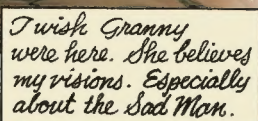 I wish Granny
were here. She believes
my visions. Especially
about the Sad Man.